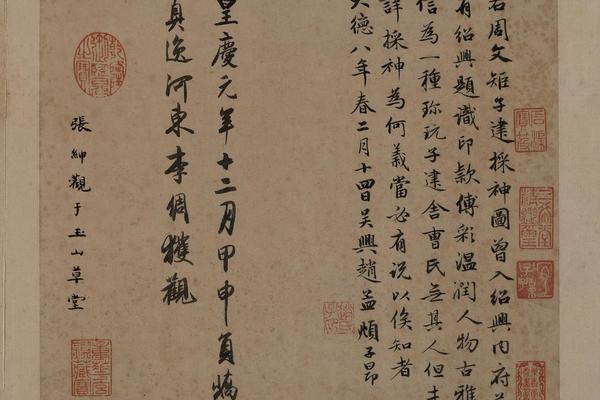 右周文矩子建採神圖曾入紹興內府蓋
有紹興題識印款傅彩溫潤人物古雅
信為一種珍玩子建舍曹氏無其人但未
詳採神為何義當必有說以俟知者
大德八年春二月十四日吳興趙孟頫子昂
皇慶元年十二月甲申員嶠
真逸河東李倜獲觀
張紳觀于玉山草堂